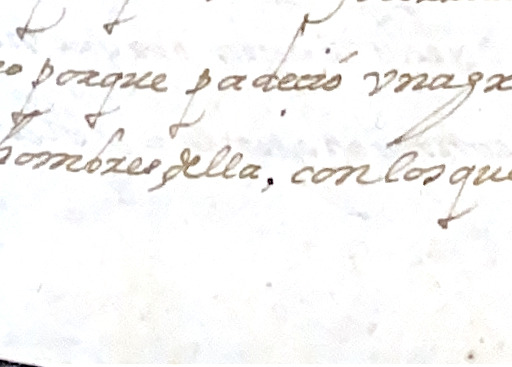 porque padeció vna gr
hombres della, con los que